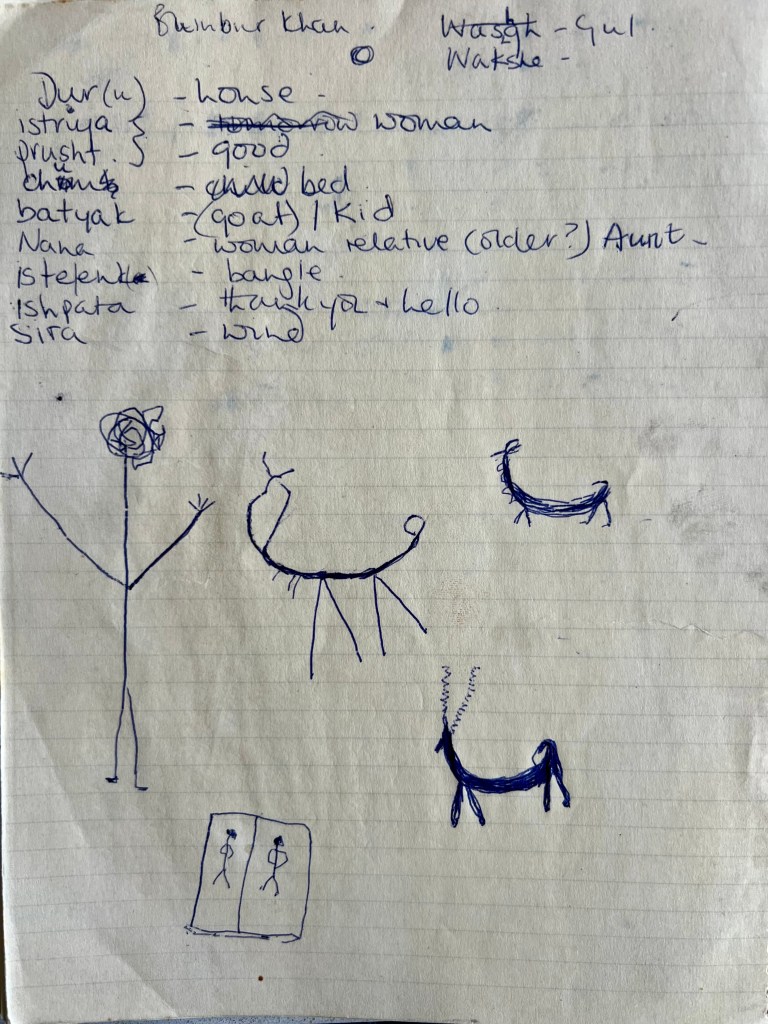 Khan
Wasgh - Gul
Wakshe -
Dur(u) - house -
istriya } - tomorrow woman
prusht . } - good
- child bed
batyak - (goat) / Kid
Nana - woman relative (older?) Aunt -
- bangle .
Ishpata - thank you + hello
Sira - wind